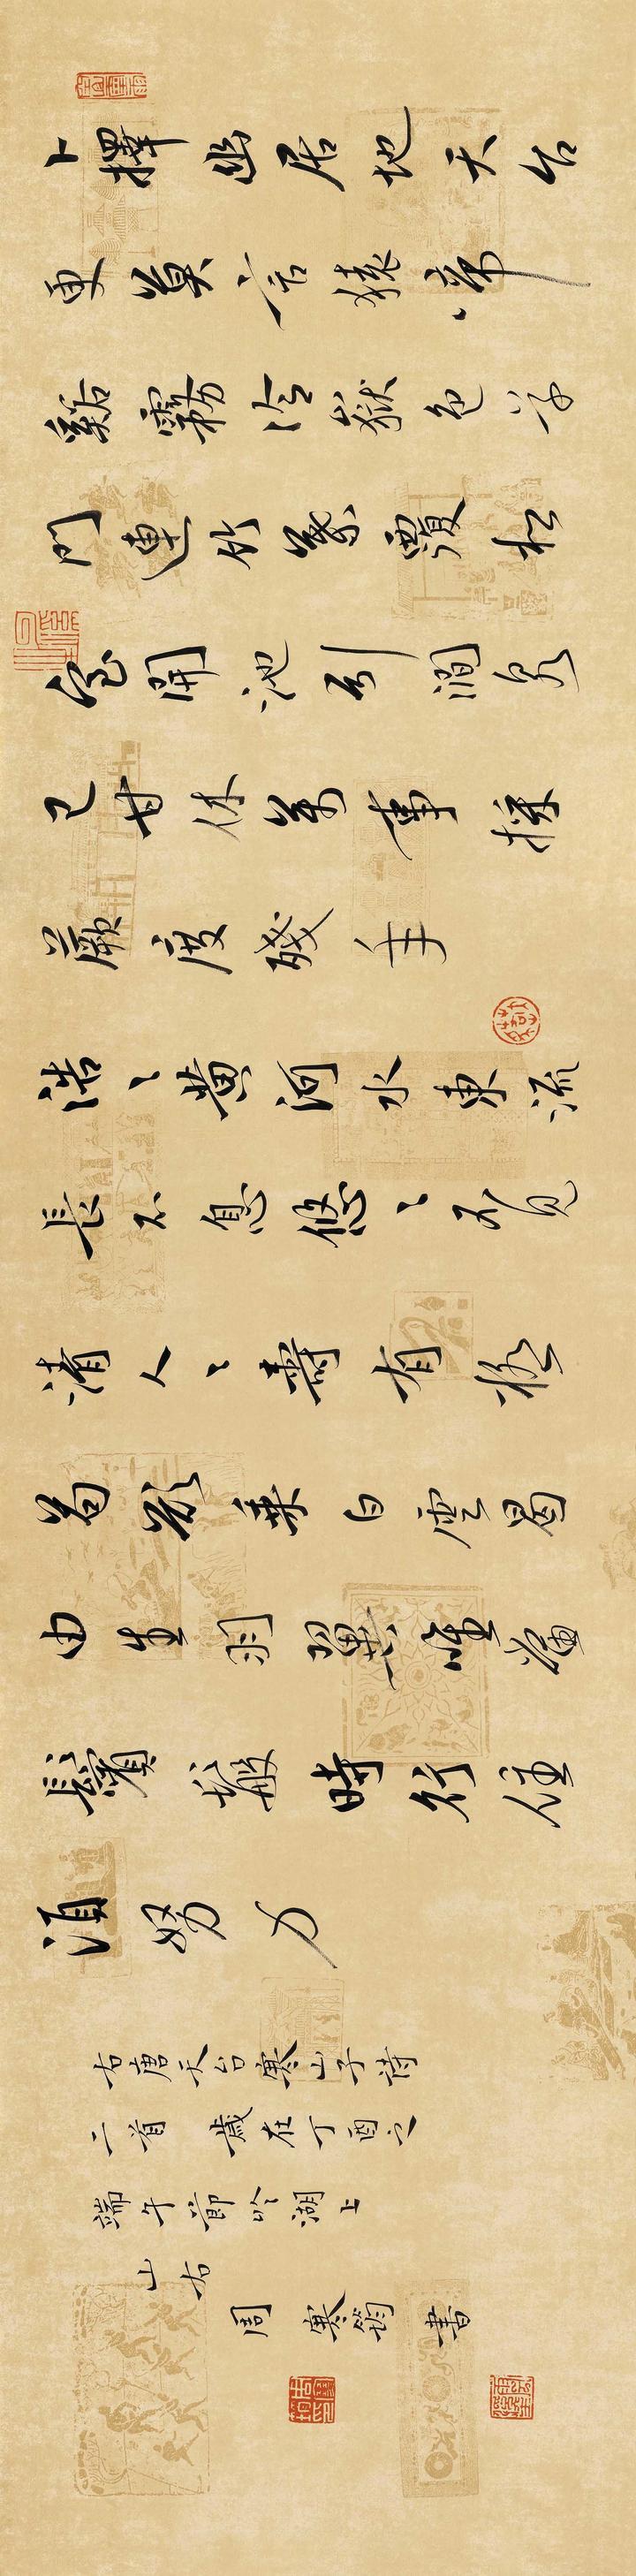 卜擇幽居地天台
更莫言猿啼
谿霧冷嶽色草
門連竹葉覆松
室開池引澗泉
已甘休萬事採
蕨度殘年
浩〻黃河水東流
長不息悠〻不見
清人〻壽有極
苟欲乘白雲曷
由生羽翼唯當
鬢髮時行住
須努力
右唐天台寒山子詩
二首 歲在丁酉之
端午節於湖上
山右
周寒筠書